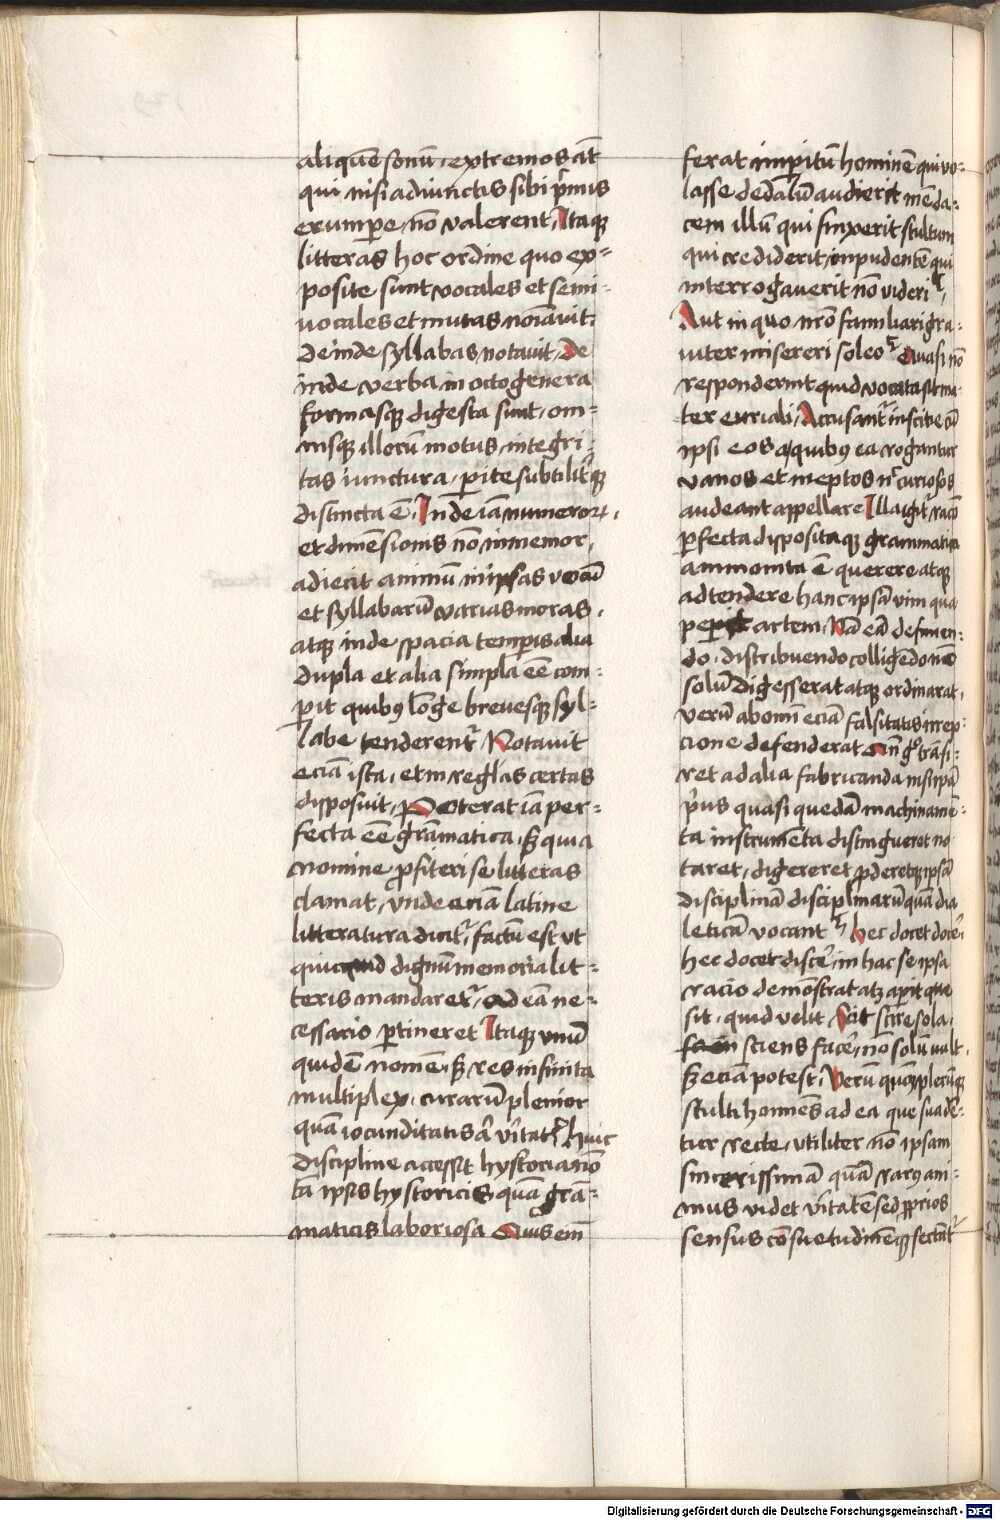 aliquē sonū, extremos aūt
qui nisi adiunctis sibi p̄mis
erumpe̱ nō valerent, Itaqꝫ
litteras hoc ordine quo ex-
posite sunt vocales et semi-
uocales et mutas noīauit.
Deinde syllabas notauit, De
inde verba in octo genera
formasqꝫ digesta sunt, om-
nisqꝫ illorū motus, integri-
tas iunctura, ꝑite subtilit̉qꝫ
distincta ē, Inde iā numeroꝝ,
et dimēsionis nō inmemor,
adiecit animū in ipsas vocū
et syllabarū varias moras,
atqꝫ inde spacia temꝑis alia
dupla et alia simpla eē com-
ꝑit quibꝰ lōge breuesqꝫ syl-
labe tenderent᷑ Notauit
eciā ista, et in regl̉as certas
disposuit, Poterat iā per-
fecta eē grāmatica, sꝫ quia
nomine ꝓfiteri se litteras
clamat, vnde eciā latine
litteratura dicit᷑, factū est vt
quicquid dignū memoria lit-
teris mandaret᷑, ad eā ne-
cessario ꝑtineret Itaqꝫ vnū
quidē nomē, sꝫ res infinita
multiplex, curarū plenior
quā iocunditatis aū v̄itat᷑, huic
discipline accessit hystoria nō
tā ipsis hystoricis quā grā-
maticis laboriosa Quis em̄
ferat imꝑitū hominē qui vo-
lasse dedalū audierit mēda-
cem illū qui finxerit stultum
qui crediderit, inpudentē qui
interrogauerit nō videri,
Aut in quo nr̄o familiari gra-
uiter misereri soleo Quasi nō
responderint quid vocata sit ma-
ter euriali, Accusant᷑ inscicie cū
ipsi eos a quibꝰ ea rogantur
vanos et ineptos nc̄ curiosos
audeant appellare Illa igit᷑ racō
ꝑfecta dispositaqꝫ grammatica
ammonita ē querere atqꝫ
adtendere hanc ipsā vim qua
peperit artem, Nā eā definien-
do, distribuendo colligēdo nō
solū digesserat atqꝫ ordinarat,
verū ab omi eciā falsitatis irrep-
cione defenderat Qn̄ gͦ trāsi-
ret ad alia fabricanda nisi ipā
pͥus quasi quedā machinamē-
ta instrumēta distingueret no
taret, digereret ꝓderetqꝫ ipsā
disciplinā disciplinarū quā dia
leticā vocant hec docet docer̄,
hec docet discer̄, in hac se ipsa
racio demōstrat atqꝫ aꝑit que
sit, quid velit Scit scire sola,
sciens facer̄, nō solū uult,
sꝫ eciā potest, Verū qm̄ plerūqꝫ
stulti homīes ad ea que suadē-
tur recte, vtiliter nō ipsam
sincerissimā quā rarꝰ ani-
mus videt v̄itatē sed ꝓprios
sensus cōsuetudinēqꝫ sectāt᷑
Digitalisierung gefördert durch die Deutsche Forschungsgemeinschaft - DFG